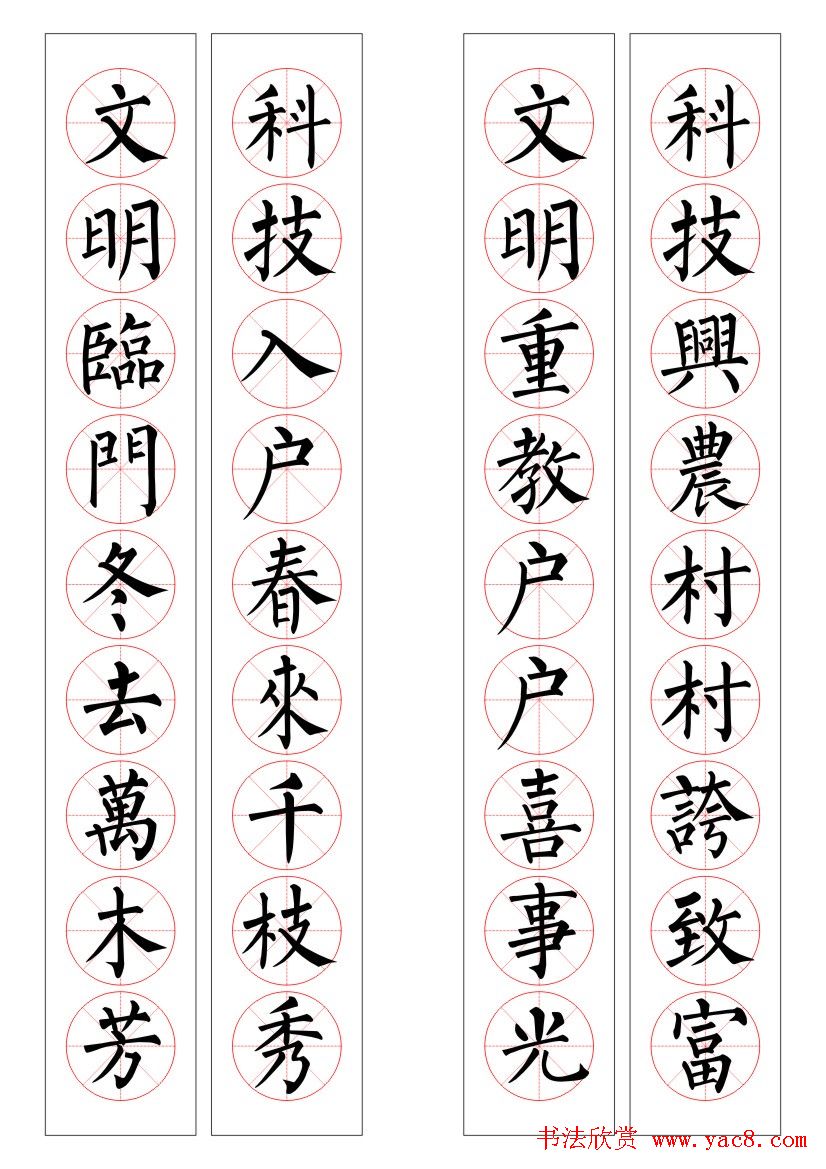 科技興農村村誇致富
文明重教户户喜事光
科技入户春來千枝秀
文明臨門冬去萬木芳
书法欣赏 www.yac8.com